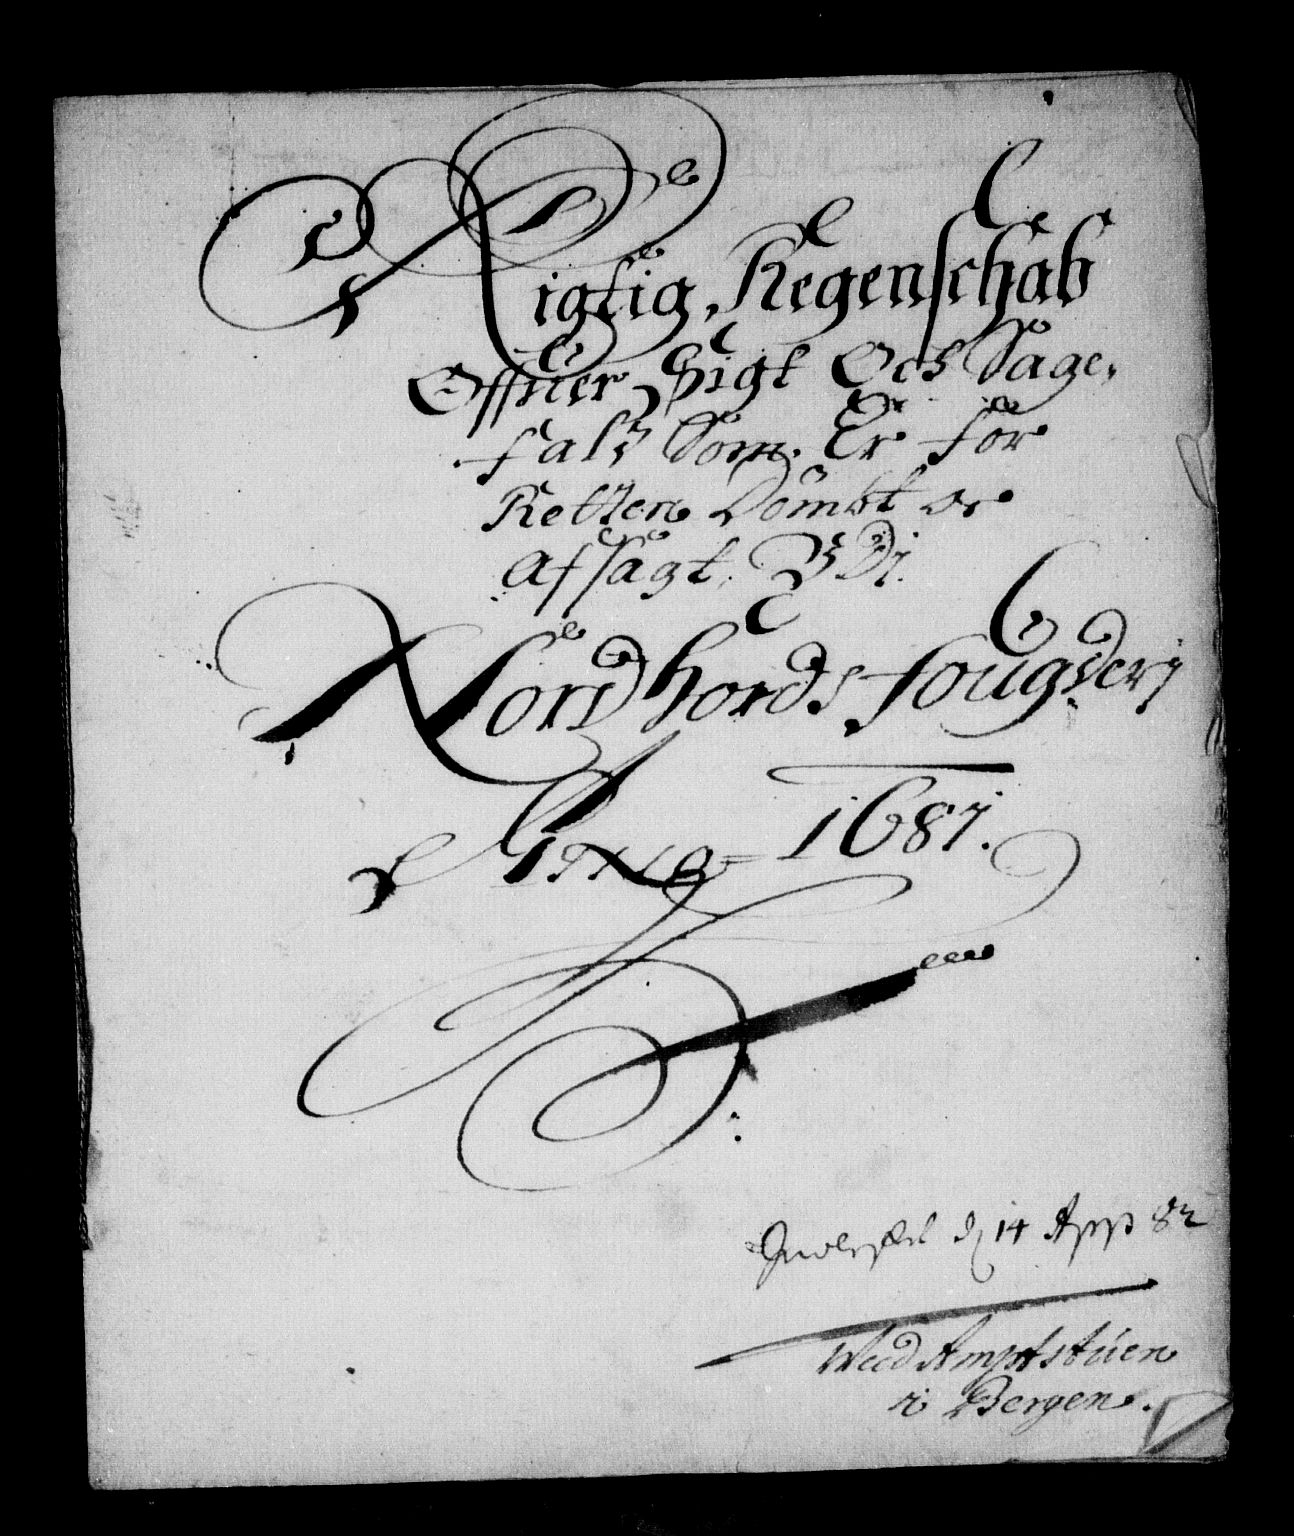 Rigtig Regenschab
Offuer Sigt Och Sage,
falz Som Er for
Retten Dömbt oc
afsagt, Udj.
Nordhords fougderj
Anno 1681.
d 14 App 82
Weed Amptstúen
i Bergen.